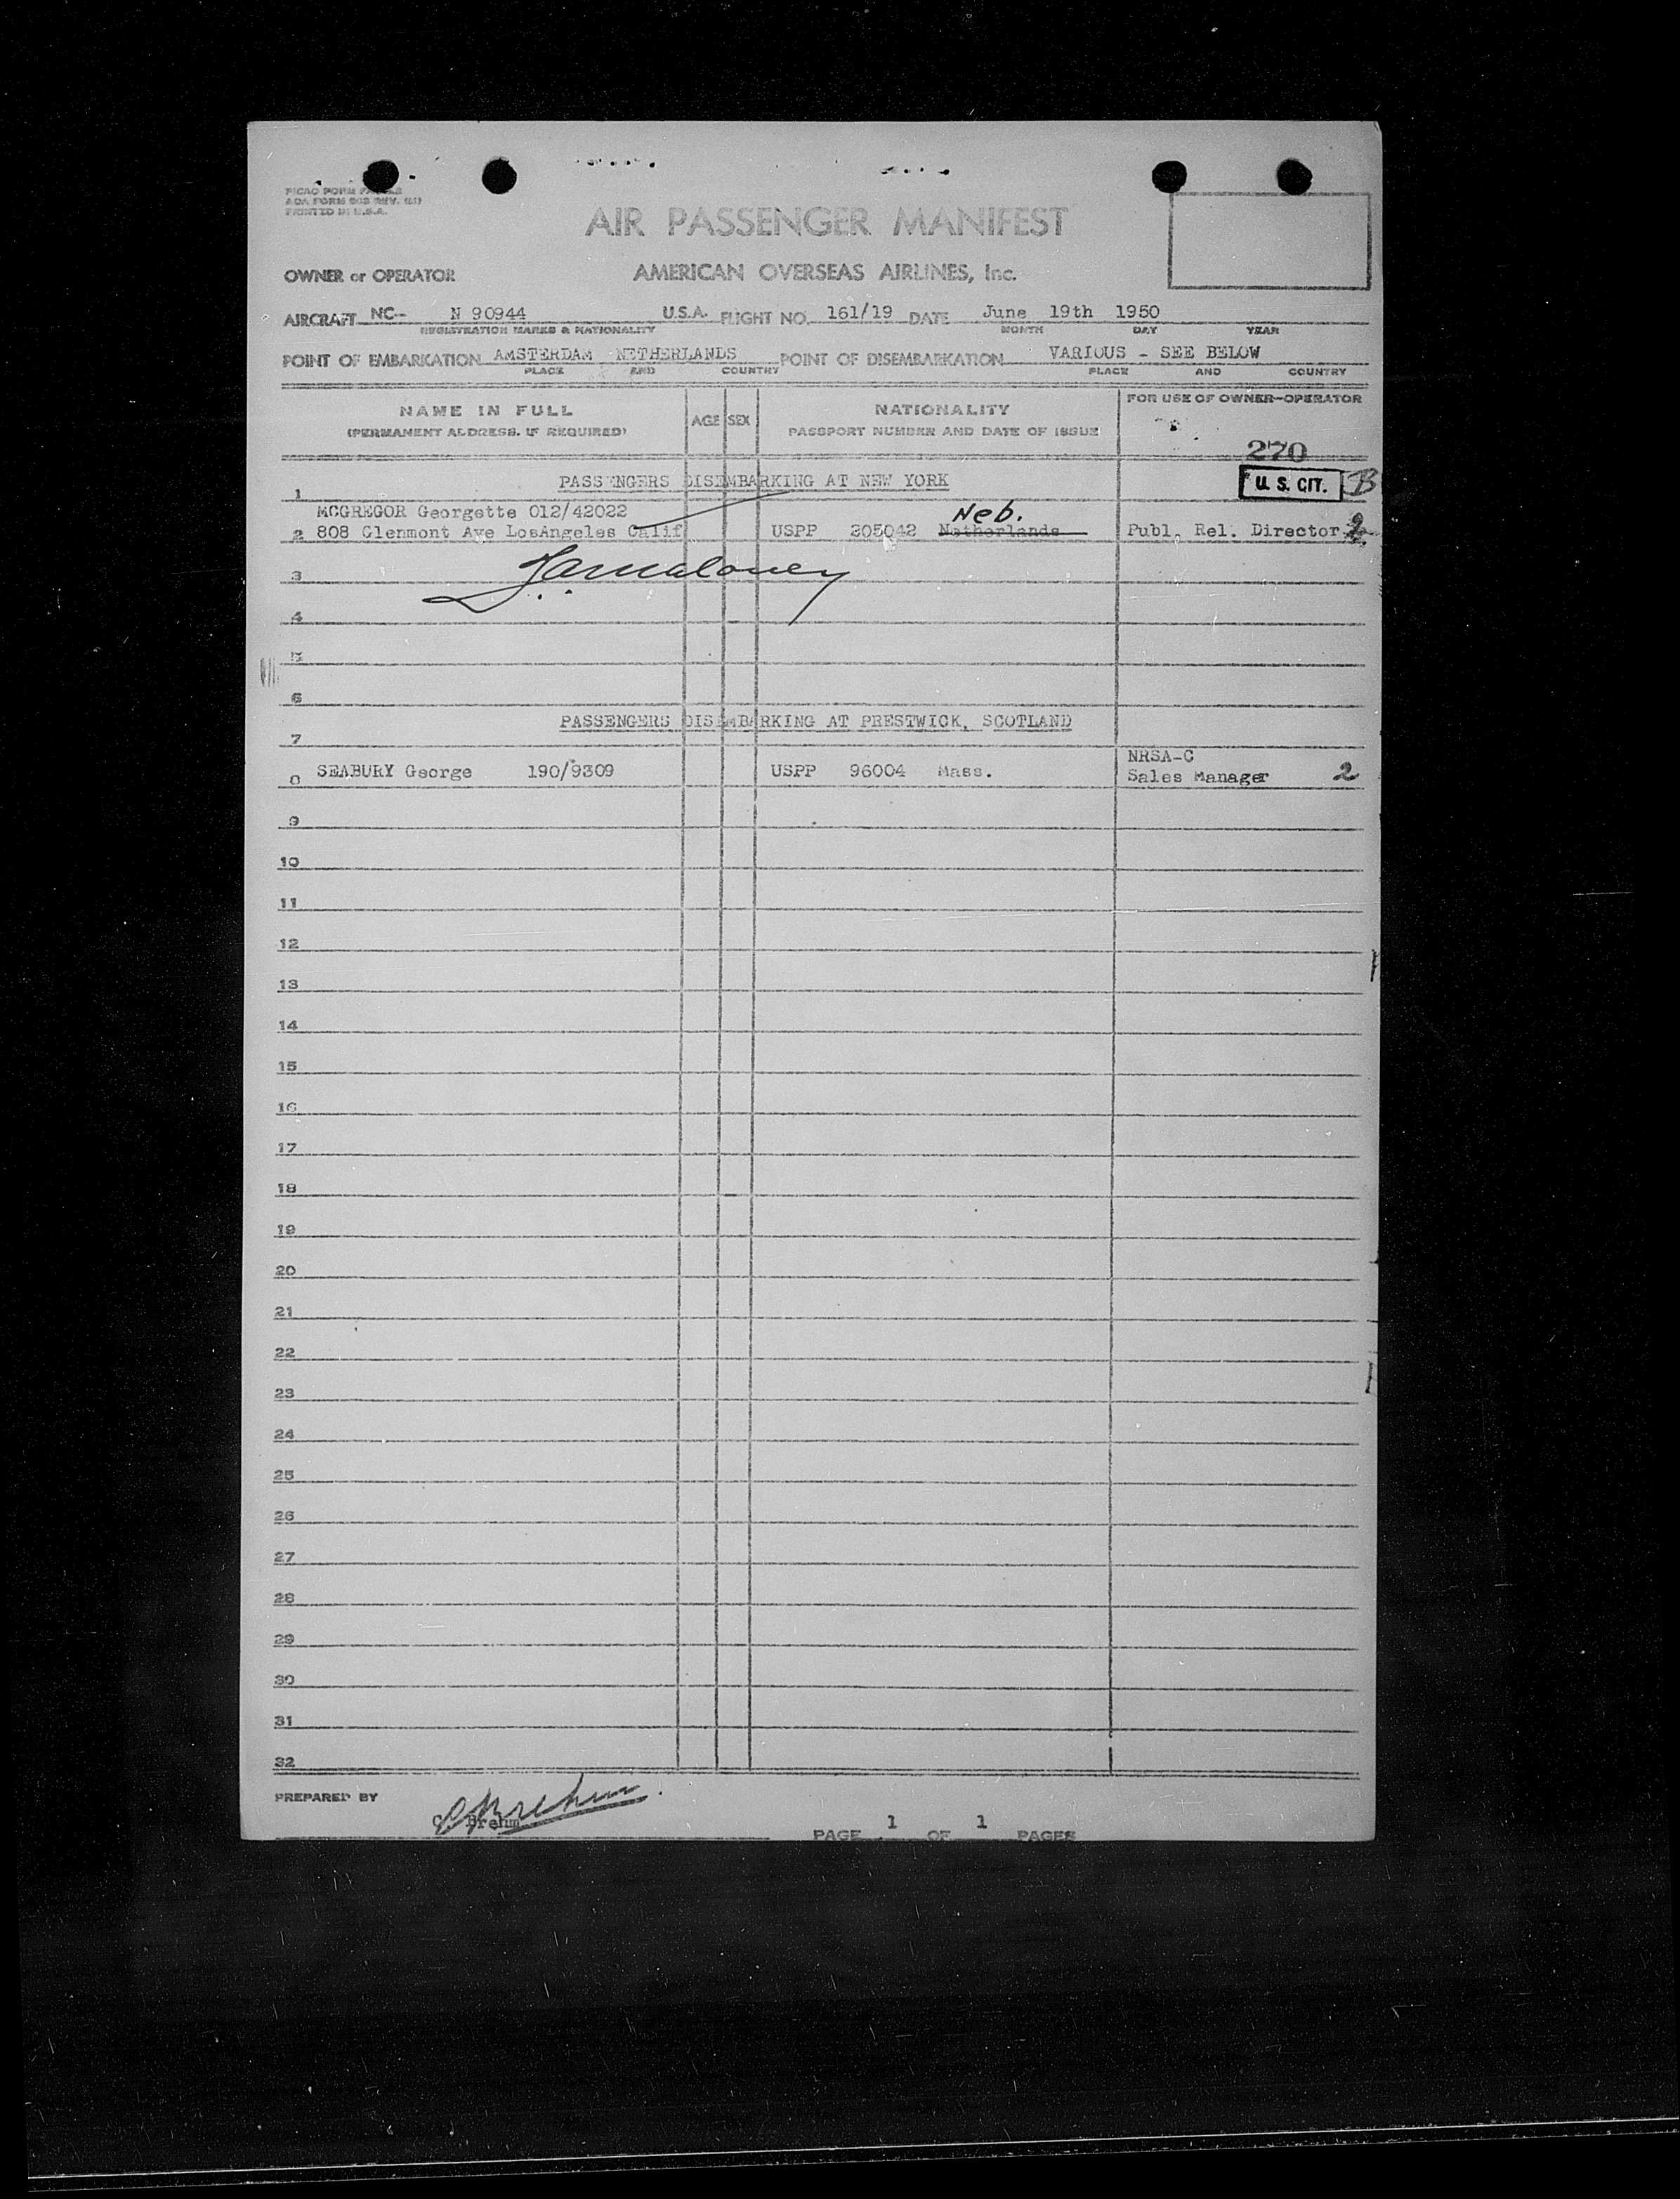 PICAO FORM
AOA FORM 808 REV.
PRINTED IN U.S.A.
AIR PASSENGER MANIFEST
OWNER or OPERATOR AMERICAN OVERSEAS AIRLINES, Inc.
AIRCRAFT NC-- N 90944 U.S.A. FLIGHT NO. 161/19 DATE June 19th 1950
REGISTRATION MARKS & NATIONALITY MONTH DAY YEAR
POINT OF EMBARKATION AMSTERDAM NETHERLANDS POINT OF DISEMBARKATION VARIOUS - SEE BELOW
PLACE AND COUNTRY PLACE AND COUNTRY
NAME IN FULL AGE SEX NATIONALITY FOR USE OF OWNER-OPERATOR
(PERMANENT ADDRESS, IF REQUIRED) PASSPORT NUMBER AND DATE OF ISSUE
270
1 PASSENGERS DISEMBARKING AT NEW YORK U. S. CIT. B
MCGREGOR Georgette 012/42022 Neb.
2 808 Glenmont Ave LosAngeles Calif USPP 205042 Netherlands Publ. Rel. Director 2
3
4
5
6
PASSENGERS DISEMBARKING AT PRESTWICK, SCOTLAND
7
NRSA-C
8 SEABURY George 190/9309 USPP 96004 Mass. Sales Manager 2
9
10
11
12
13
14
15
16
17
18
19
20
21
22
23
24
25
26
27
28
29
30
31
32
PREPARED BY
C. Brehm
PAGE 1 OF 1 PAGES